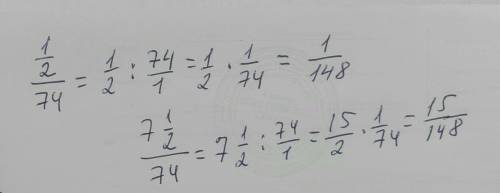 \frac{\frac{1}{2}}{74} = \frac{1}{2} : \frac{74}{1} = \frac{1}{2} \cdot \frac{1}{74} = \frac{1}{148}
\frac{7\frac{1}{2}}{74} = 7\frac{1}{2} : \frac{74}{1} = \frac{15}{2} \cdot \frac{1}{74} = \frac{15}{148}